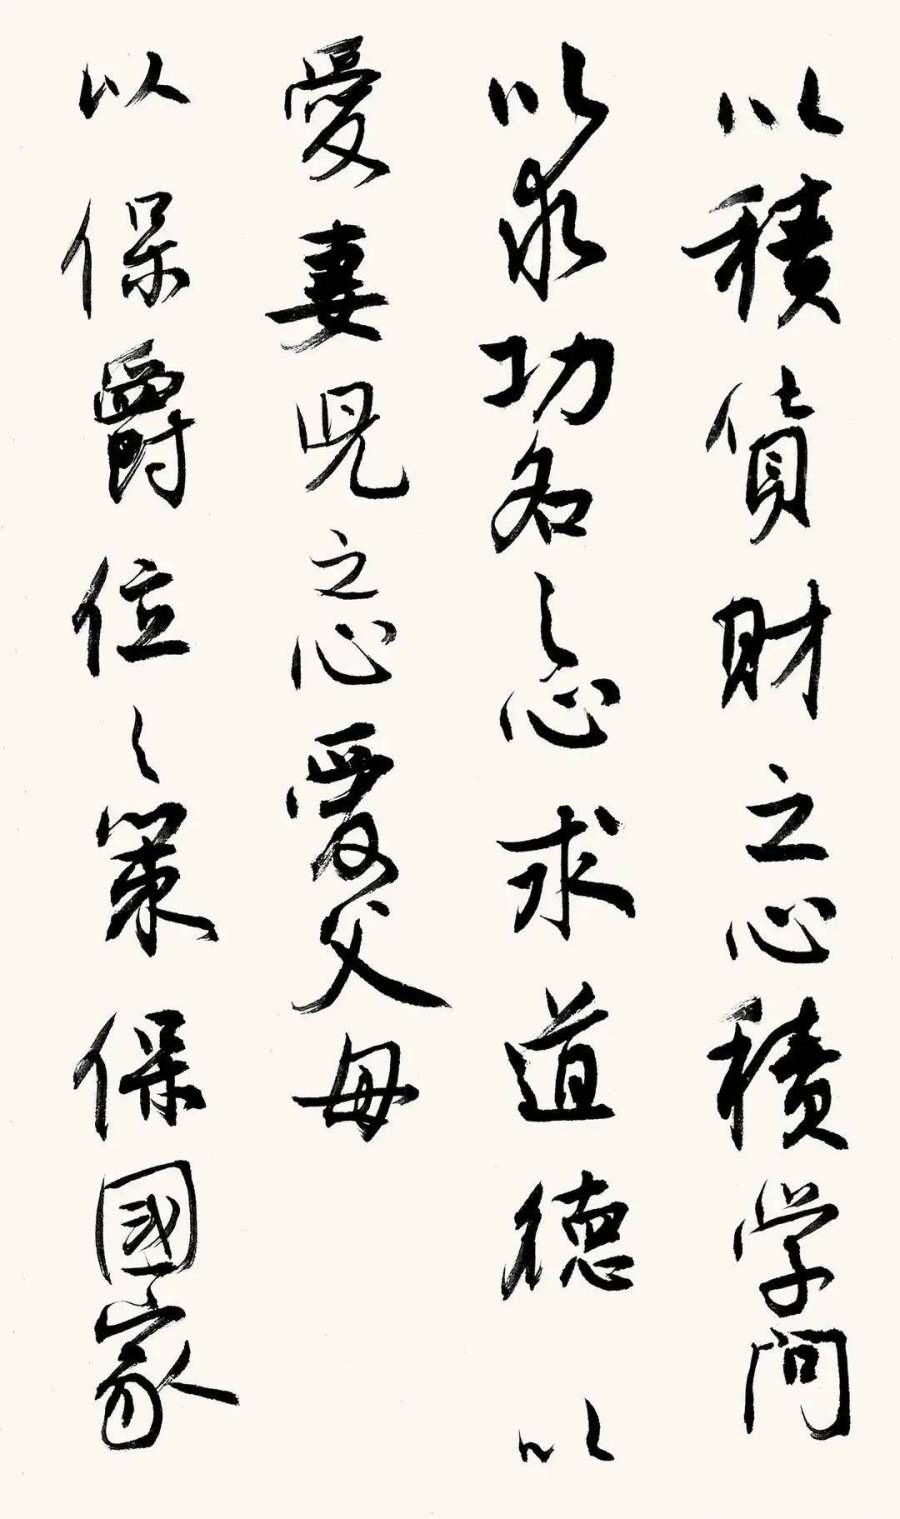 以積貨財之心積学问
以求功名之心求道德以
愛妻児之心爱父母
以保爵位之策保國家